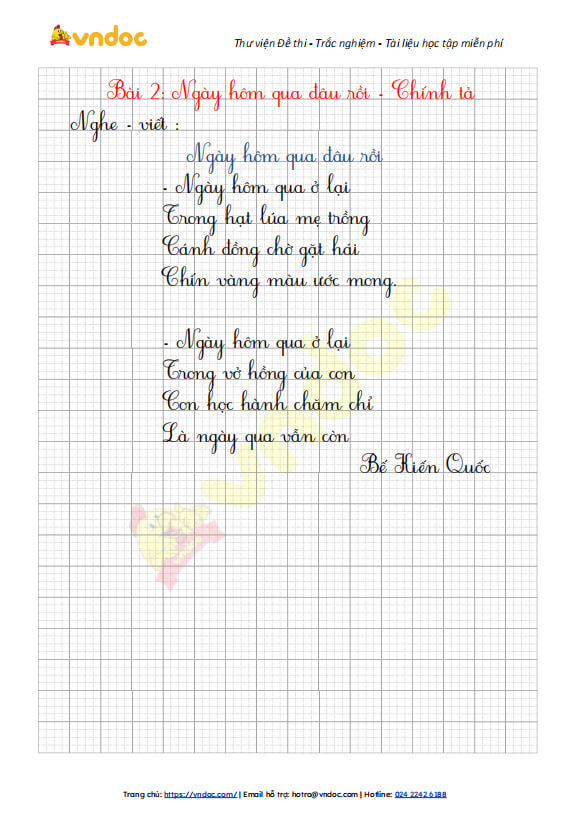 vndoc
Thư viện Đề thi - Trắc nghiệm - Tài liệu học tập miễn phí
Bài 2: Ngày hôm qua đâu rồi - Chính tả
Nghe - viết :
Ngày hôm qua đâu rồi
- Ngày hôm qua ở lại
Trong hạt lúa mẹ trồng
Cánh đồng chờ gặt hái
Chín vàng màu ước mong.
- Ngày hôm qua ở lại
Trong vở hồng của con
Con học hành chăm chỉ
Là ngày qua vẫn còn
Bế Kiến Quốc
vndoc
Trang chủ: https://vndoc.com/ | Email hỗ trợ: hotro@vndoc.com | Hotline: 024 2242 6188